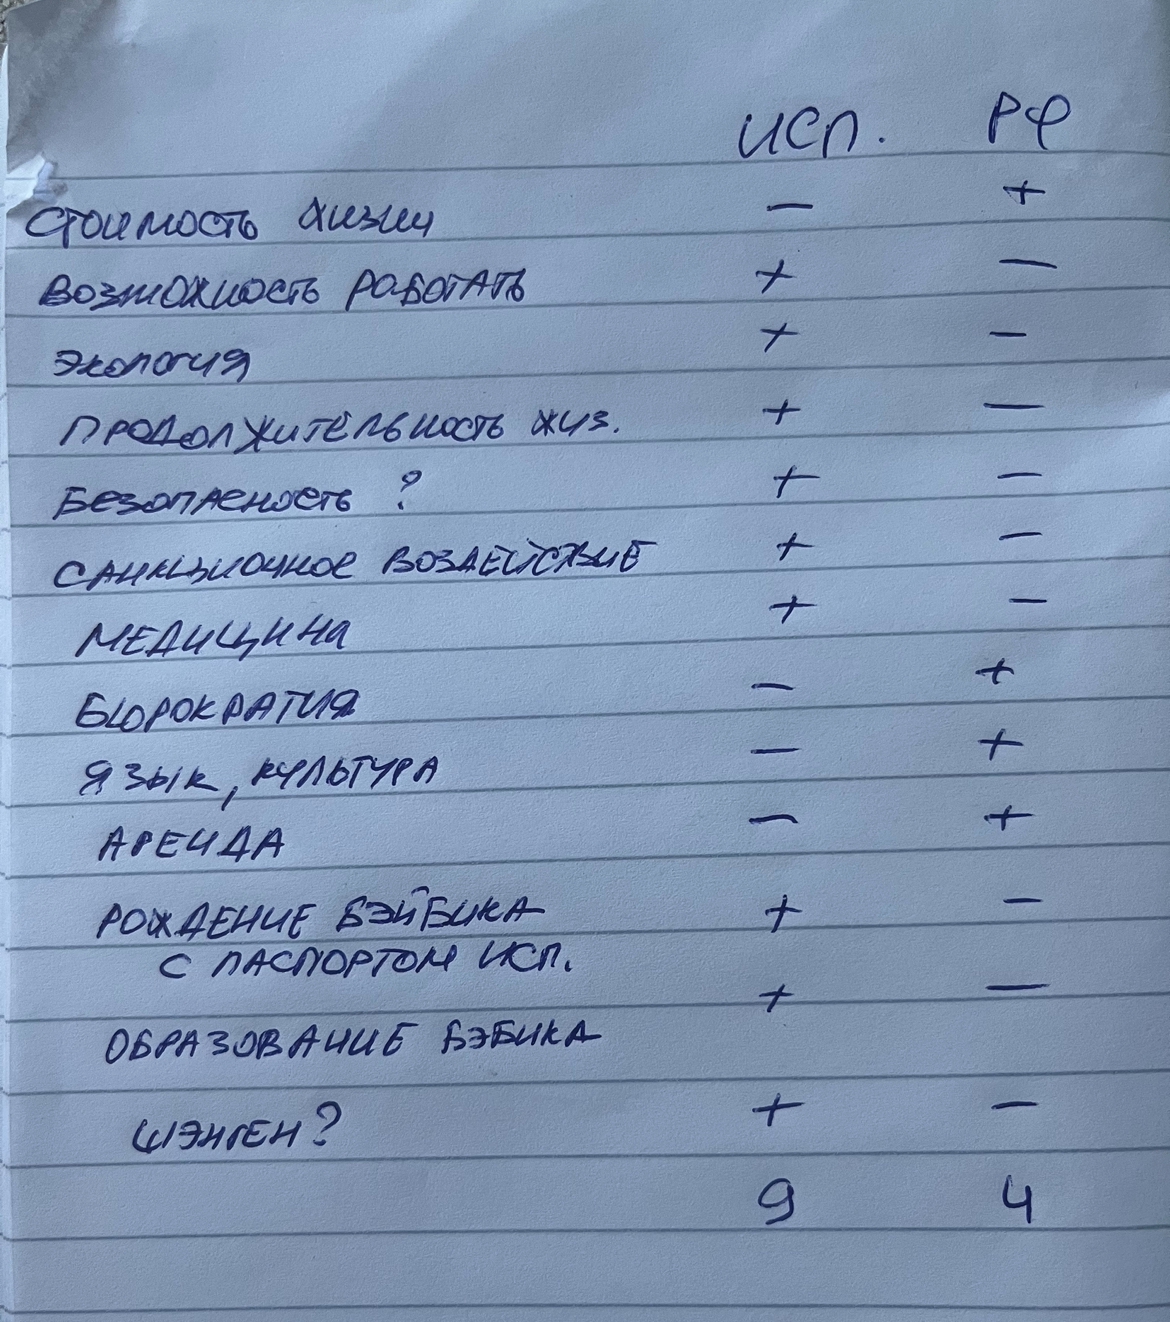 ИСП. РФ
СТОИМОСТЬ ЖИЗНИ − +
ВОЗМОЖНОСТЬ РАБОТАТЬ + −
ЭКОЛОГИЯ + −
ПРОДОЛЖИТЕЛЬНОСТЬ ЖИЗ. + −
БЕЗОПАСНОСТЬ ? + −
САНКЦИОННОЕ ВОЗДЕЙСТВИЕ + −
МЕДИЦИНА + −
БЮРОКРАТИЯ − +
ЯЗЫК, КУЛЬТУРА − +
АРЕНДА − +
РОЖДЕНИЕ БЭЙБИКА + −
С ПАСПОРТОМ ИСП.
ОБРАЗОВАНИЕ БЭБИКА + −
ШЭНГЕН? + −
9 4